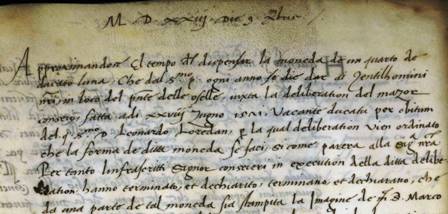 M. D. XXIIJ. Die 9. Xbris
Approximandose El tempo del dispensar la moneda de un quarto de
ducato luna Che dal ser.mo p. ogni anno se die dar di Zentilhomini
nri in loco del pnte delle oselle iuxta la deliberation del mazor
conseio fatta adi XXVIIJ Iugno 1521. Vacante ducatu per obitum
del q. ser.mo D. Leonardo Loredan, p la qual deliberation vien ordinato
che la forma de ditta moneda se faci si come parera alla Sig. nra
Per tanto Linfrascritti Signor conseieri in execution della ditta delibe
ration: hanno terminato, et dechiarito, terminano et dechiarano, che
da una parte de tal moneda sia stampita la Imagine de m. D. Marco